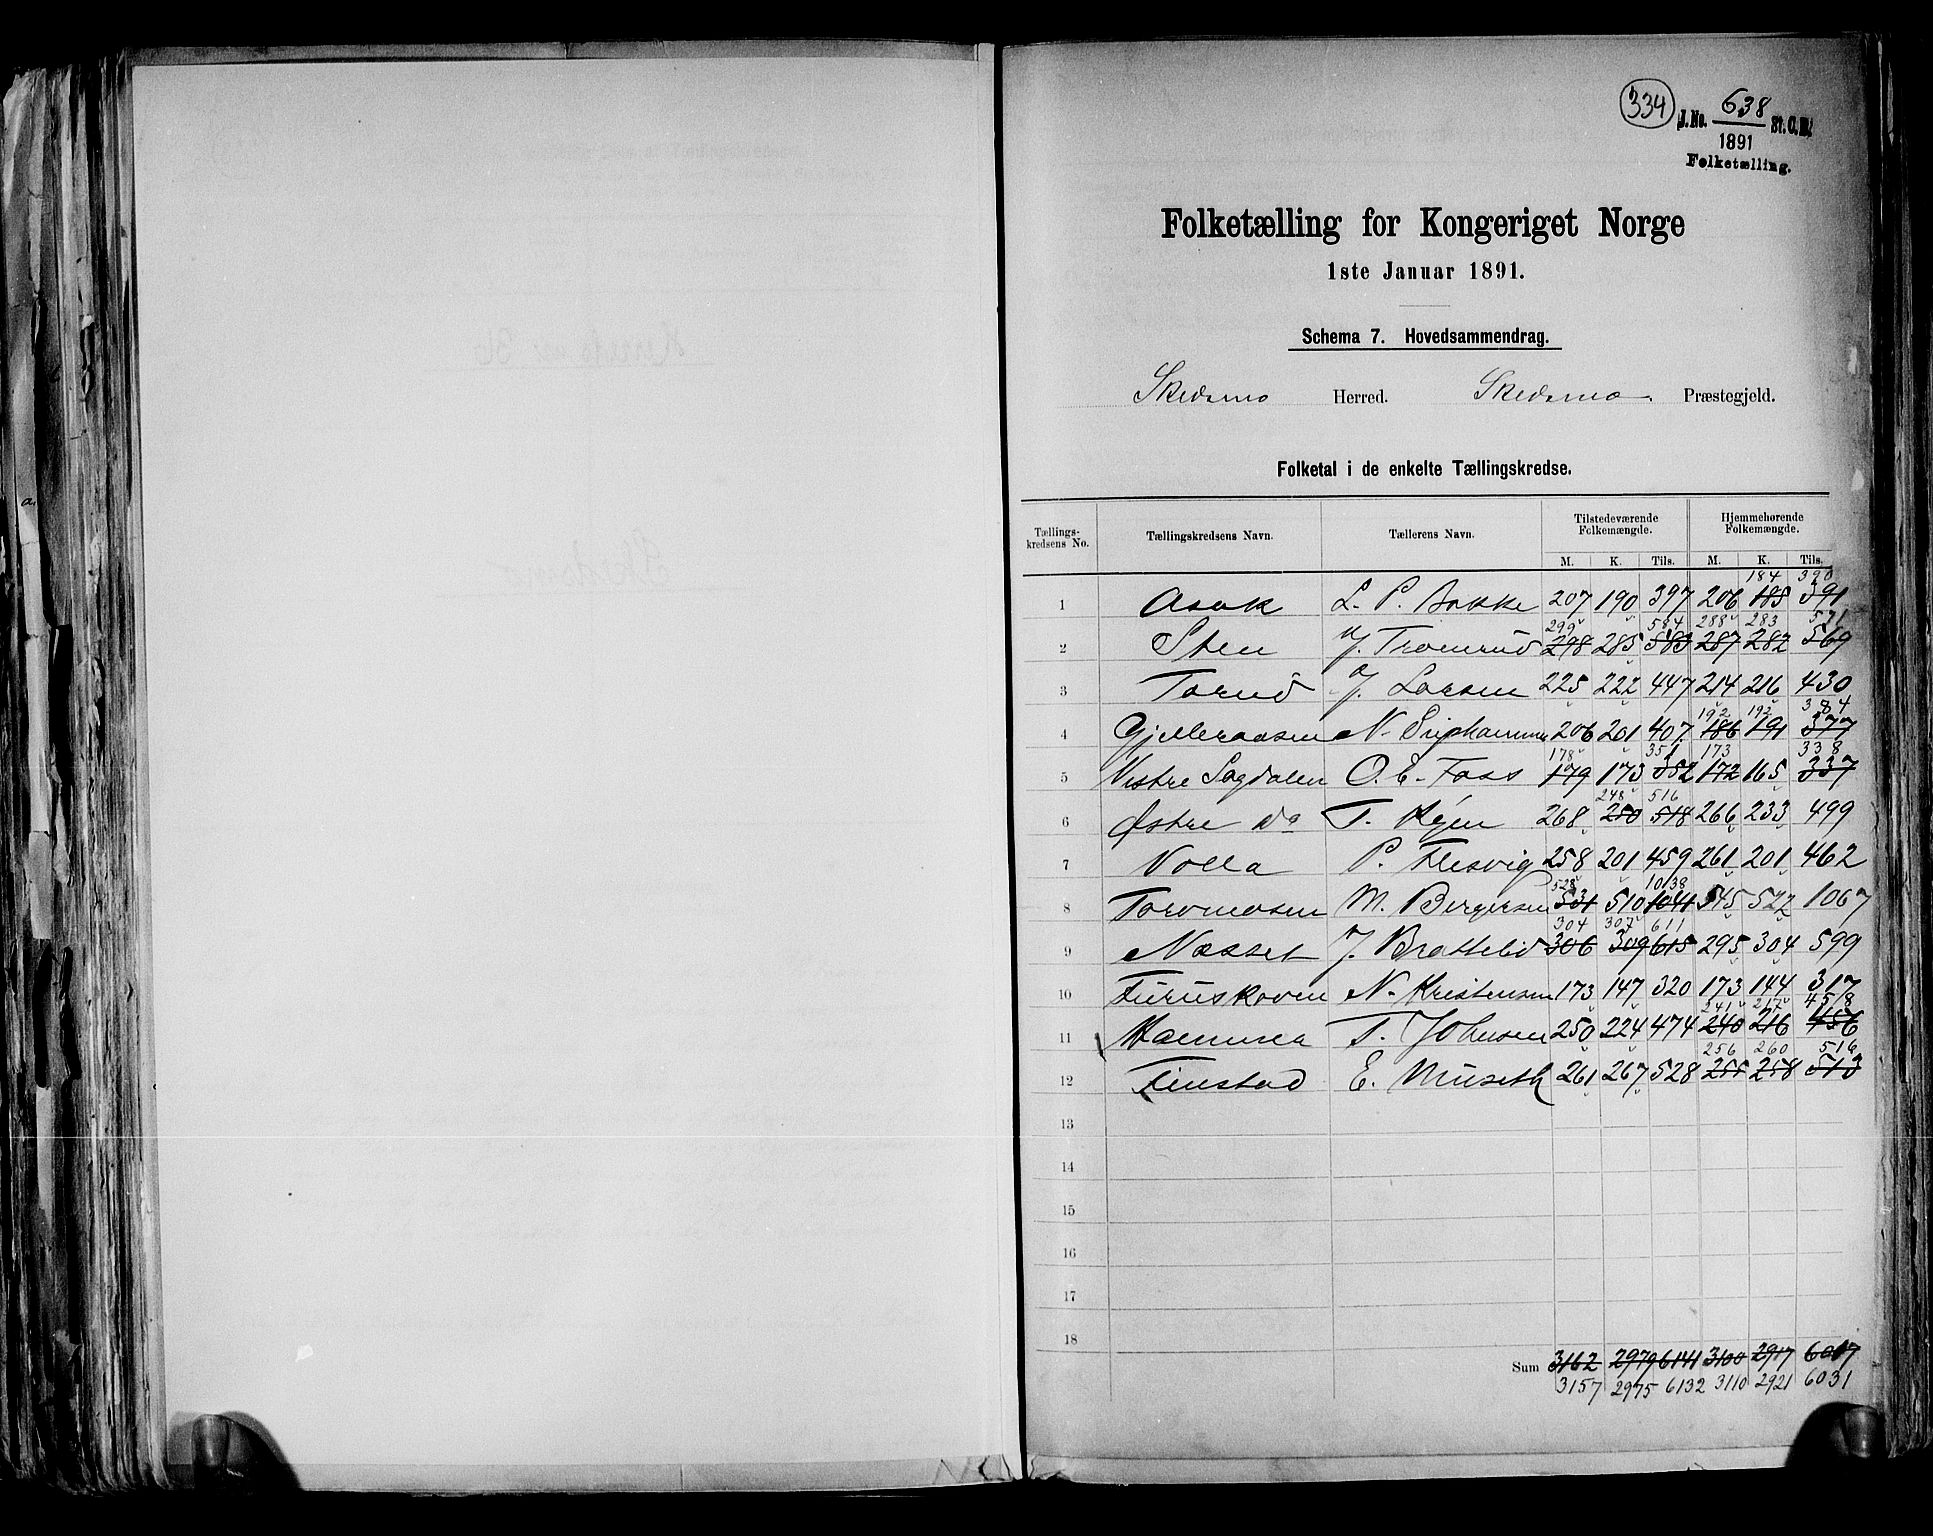 334
J. No. 638 St. C. B.
1891
Folketælling.
Folketælling for Kongeriget Norge
1ste Januar 1891.
Schema 7. Hovedsammendrag.
Skedsmo Herred. Skedsmo Præstegjeld.
Folketal i de enkelte Tællingskredse.
Tællings-kredsens No. Tællingskredsens Navn. Tællerens Navn. Tilstedeværende Folkemængde. Hjemmehørende Folkemængde.
M. K. Tils. M. K. Tils.
184 390
1 Asak L. P. Bakke 207 190 397 206 185 391
299 584 288 283 571
2 Sten J. Tromrud 298 285 583 287 282 569
3 Torud J. Larsen 225 222 447 214 216 430
192 192 384
4 Gjelleraasen N. 206 201 407 186 191 377
178 351 173 338
5 Vestre Sagdalen O. E. Foss 179 173 352 172 165 337
248 516
6 Østre Do T. 268 250 518 266 233 499
7 Volla P. Flesvig 258 201 459 261 201 462
528 1038
8 Torvmosen M. Bergersen 531 510 1041 545 522 1067
304 307 611
9 Næsset J. Brottelid 306 309 615 295 304 599
10 Furuskoven N. Kristensen 173 147 320 173 144 317
241 217 458
11 Hammer T. Johnsen 250 224 474 240 216 456
256 260 516
12 Finstad E. Museth 261 267 528 255 258 513
13
14
15
16
17
18
Sum 3162 2979 6141 3100 2917 6017
3157 2975 6132 3110 2921 6031